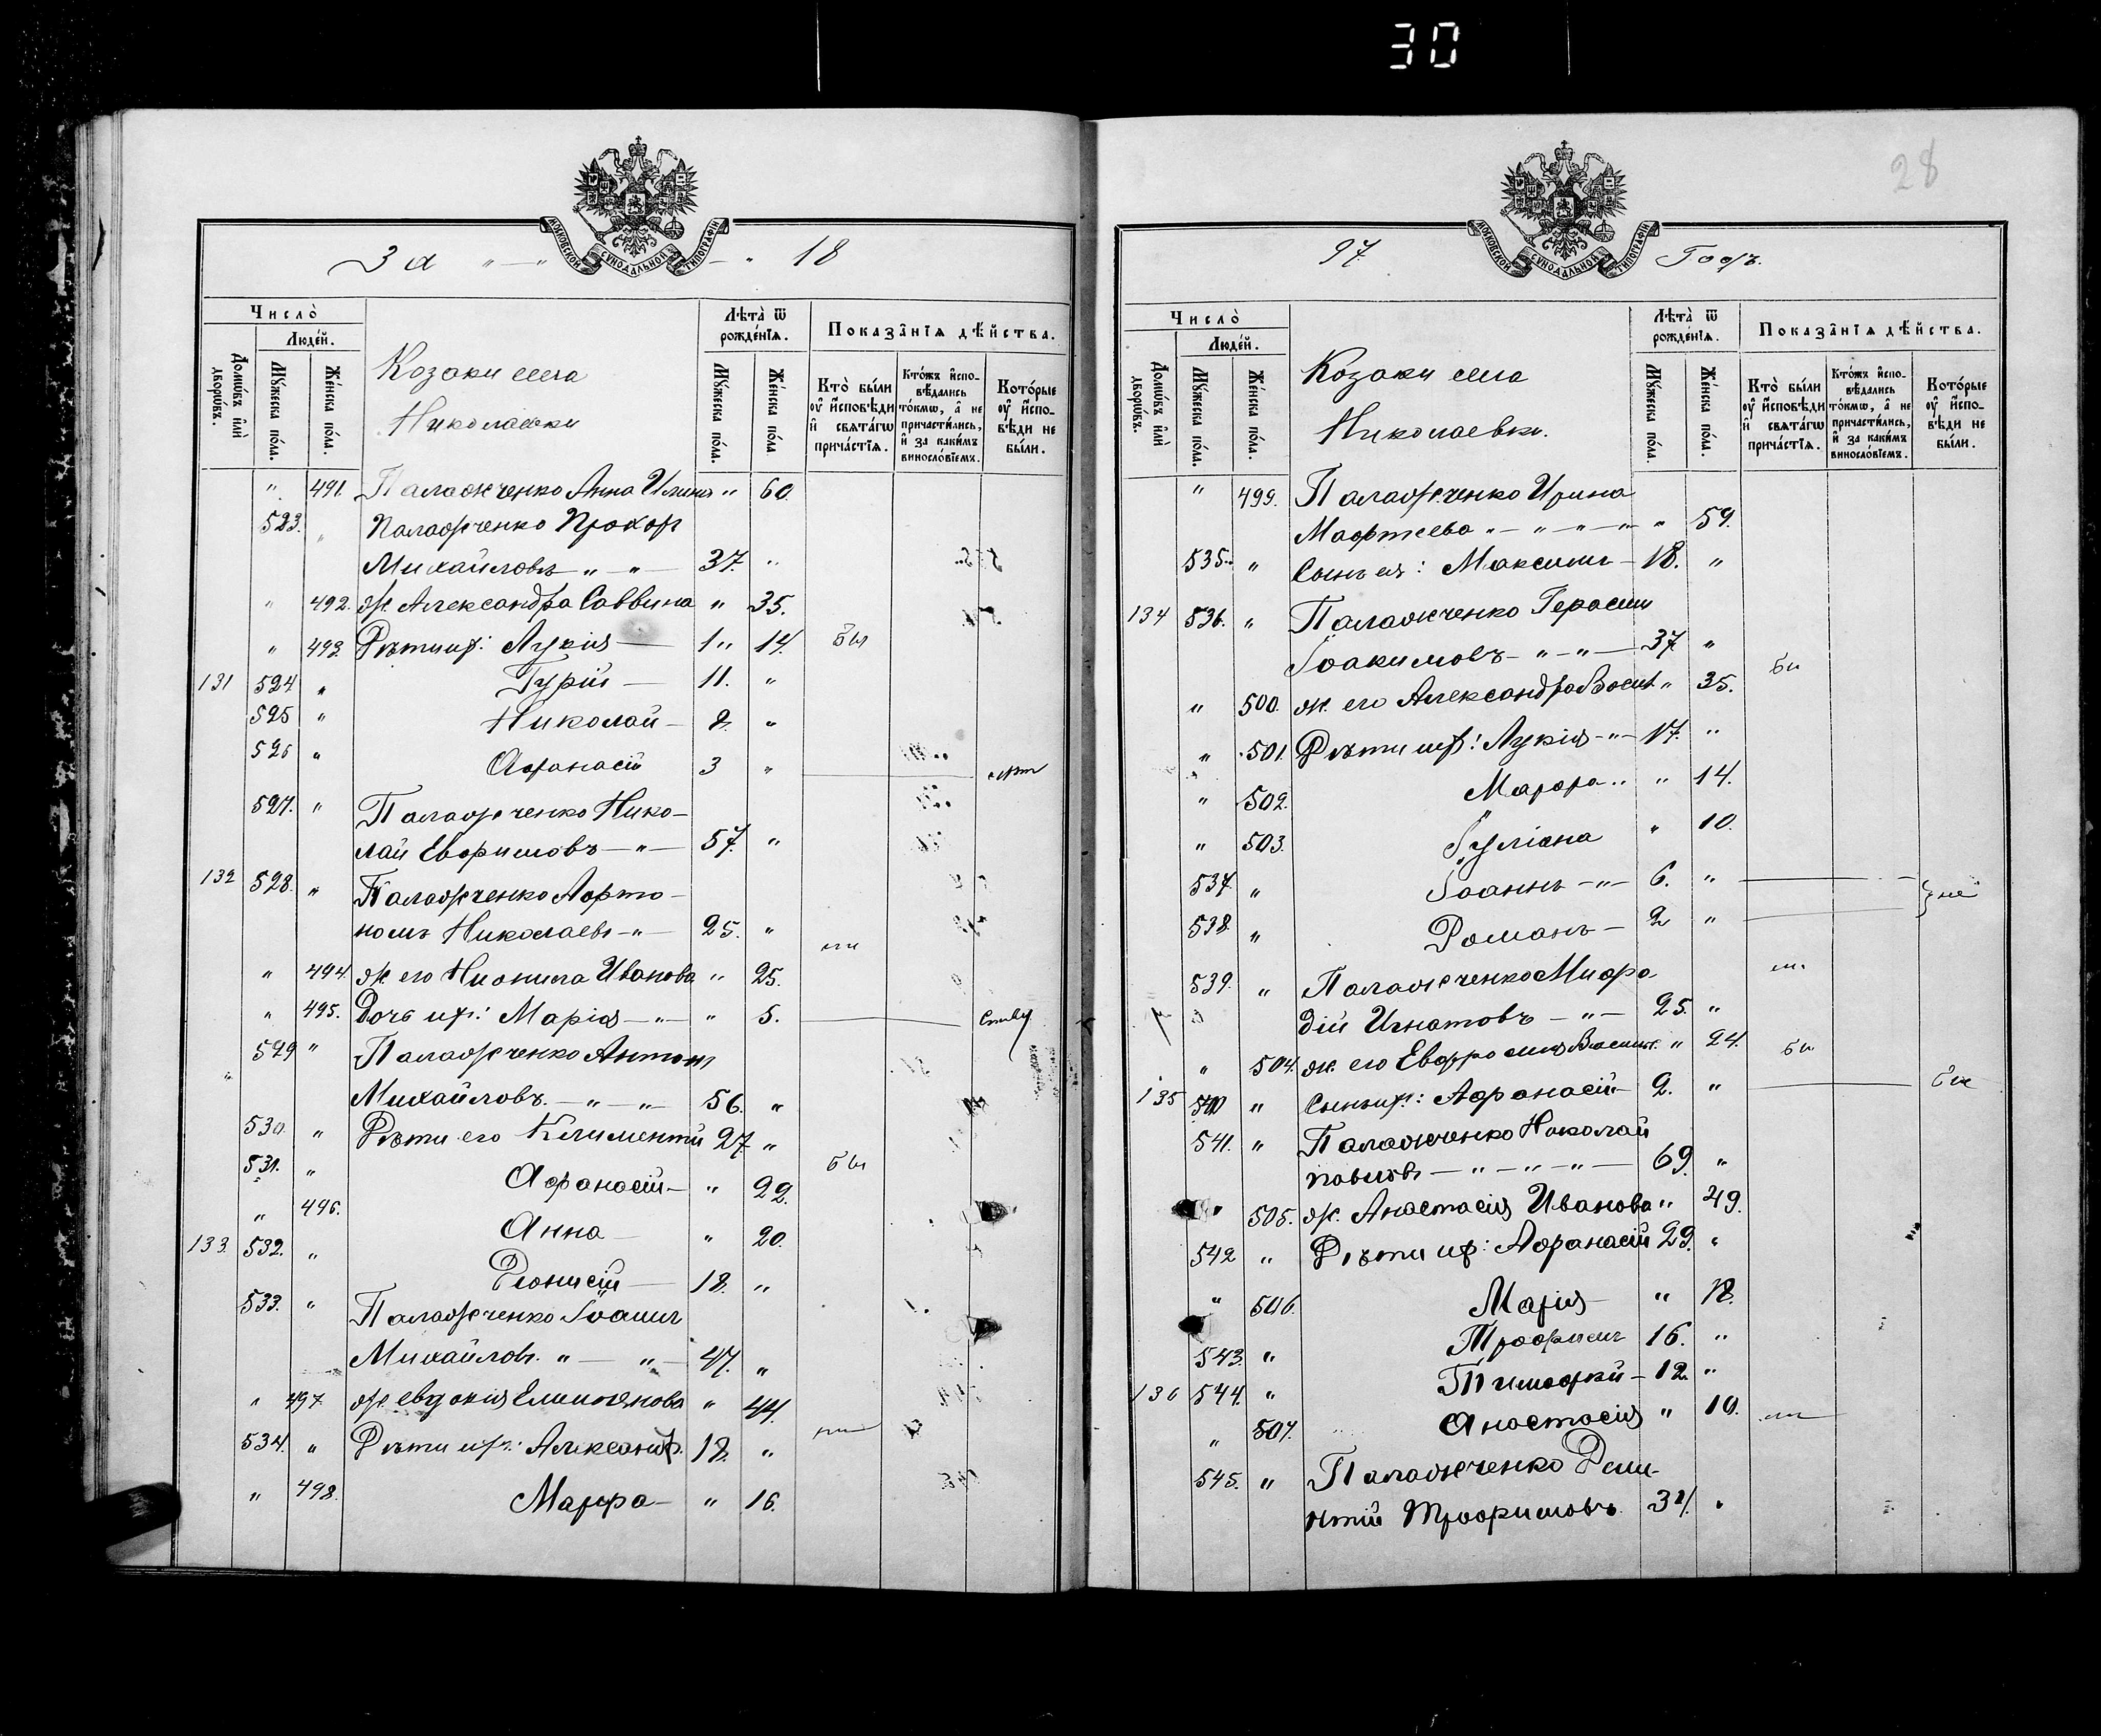 30
28
МОСКОВСКОЙ СУНОДАЛЬНОЙ ТИПОГРАФІИ
За " — " — " 18
Число̀
Людей.
Домѡ́въ и҆лѝ дворѡ́въ.
Мꙋ́жеска по́ла.
Же́нска по́ла.
Козаки села
Николаевки
Лѣта̀ ѿ рожде́нїѧ.
Мꙋ́жеска по́ла.
Же́нска по́ла
Показа̂нїѧ дѣ́йства.
Кто̀ бы́ли оу҆ и҆сповѣди и҆ свѧта́гѡ прича́стїѧ.
Кто́жъ и҆спо-вѣдались то́кмѡ, а҆ не причасти́лись, и҆ за каки́мъ винословїемъ.
Кото́рые оу҆ и҆спо-вѣди не бы́ли.
" 491. Палажченко Анна Ильина " 60.
523. " Палажченко Прохор
Михайловъ " — " — 37. "
" 492. ж. Александра Саввина " 35.
" 493. Дѣти их: Лукія — 1 " 14. бы
131 524 " Гурій — 11. "
525 " Николай — 8. "
526 " Афанасій 3 "
527. " Палажченко Нико-
лай Евфимовъ — " — 57. "
132 528. " Палажченко Афто-
номъ Николаевъ — " — 25. "
" 494. ж. его Нионила Иванова " 25.
" 495. Дочь их: Марія — " — " 5.
529 " Палажченко Антонъ
Михайловъ. — " — " — 56. "
530. " Дѣти его Климентій 27. "
531. " Афанасій — " 22. бы
" 496. Анна — " 20.
133. 532. " Діонисій — 18. "
533. " Палажченко Іоаннъ
Михайловъ. " — " — 47. "
" 497 ж. Евдокія Емиліянова " 44.
534. " Дѣти их: Александ. 18. "
" 498. Марфа — " 16.
МОСКОВСКОЙ СУНОДАЛЬНОЙ ТИПОГРАФІИ
97. Годъ.
Число̀
Людей.
Домѡ́въ и҆лѝ дворѡ́въ.
Мꙋ́жеска по́ла.
Же́нска по́ла.
Козаки села
Николаевки.
Лѣта̀ ѿ рожде́нїѧ.
Мꙋ́жеска по́ла.
Же́нска по́ла.
Показа̂нїѧ дѣ́йства.
Кто̀ бы́ли оу҆ и҆сповѣди и҆ свѧта́гѡ прича́стїѧ.
Кто́жъ и҆спо-вѣдались то́кмѡ, а҆ не причасти́лись, и҆ за каки́мъ винословїемъ.
Кото́рые оу҆ и҆спо-вѣди не бы́ли.
" 499. Палажченко Ирина
Мафтеева " — " — " — " " 59.
535. " Сынъ ея: Максимъ — 18. "
134 536. " Палажченко Герасим
Іоакимовъ — " — " — 37 "
" 500. ж. его Александра Васил. " 35. бы
" 501. Дѣти их: Лукія — " — 17. "
" 502. Марфа " " 14.
" 503. Іуліана " 10.
537. " Іоаннъ — " — 6. "
538. " Романъ — 2 "
539. " Палажченко Мефо-
дій Игнатовъ — " — 25. "
" 504. ж. его Евфросинія Васил. " 24. бы
135 540 " Сынъ их: Афанасій — 2. "
541. " Палажченко Николай
Павловъ — " — " — " — 69. "
" 505. ж. Анастасія Иванова " 49.
542 " Дѣти их: Афанасій 29. "
" 506. Марія — " 18.
543. " Трофимъ 16. "
136 544. " Тимофей — 12. "
" 507. Анастасія " 10.
545. " Палажченко Деми-
нтій Трофимовъ. 31. "